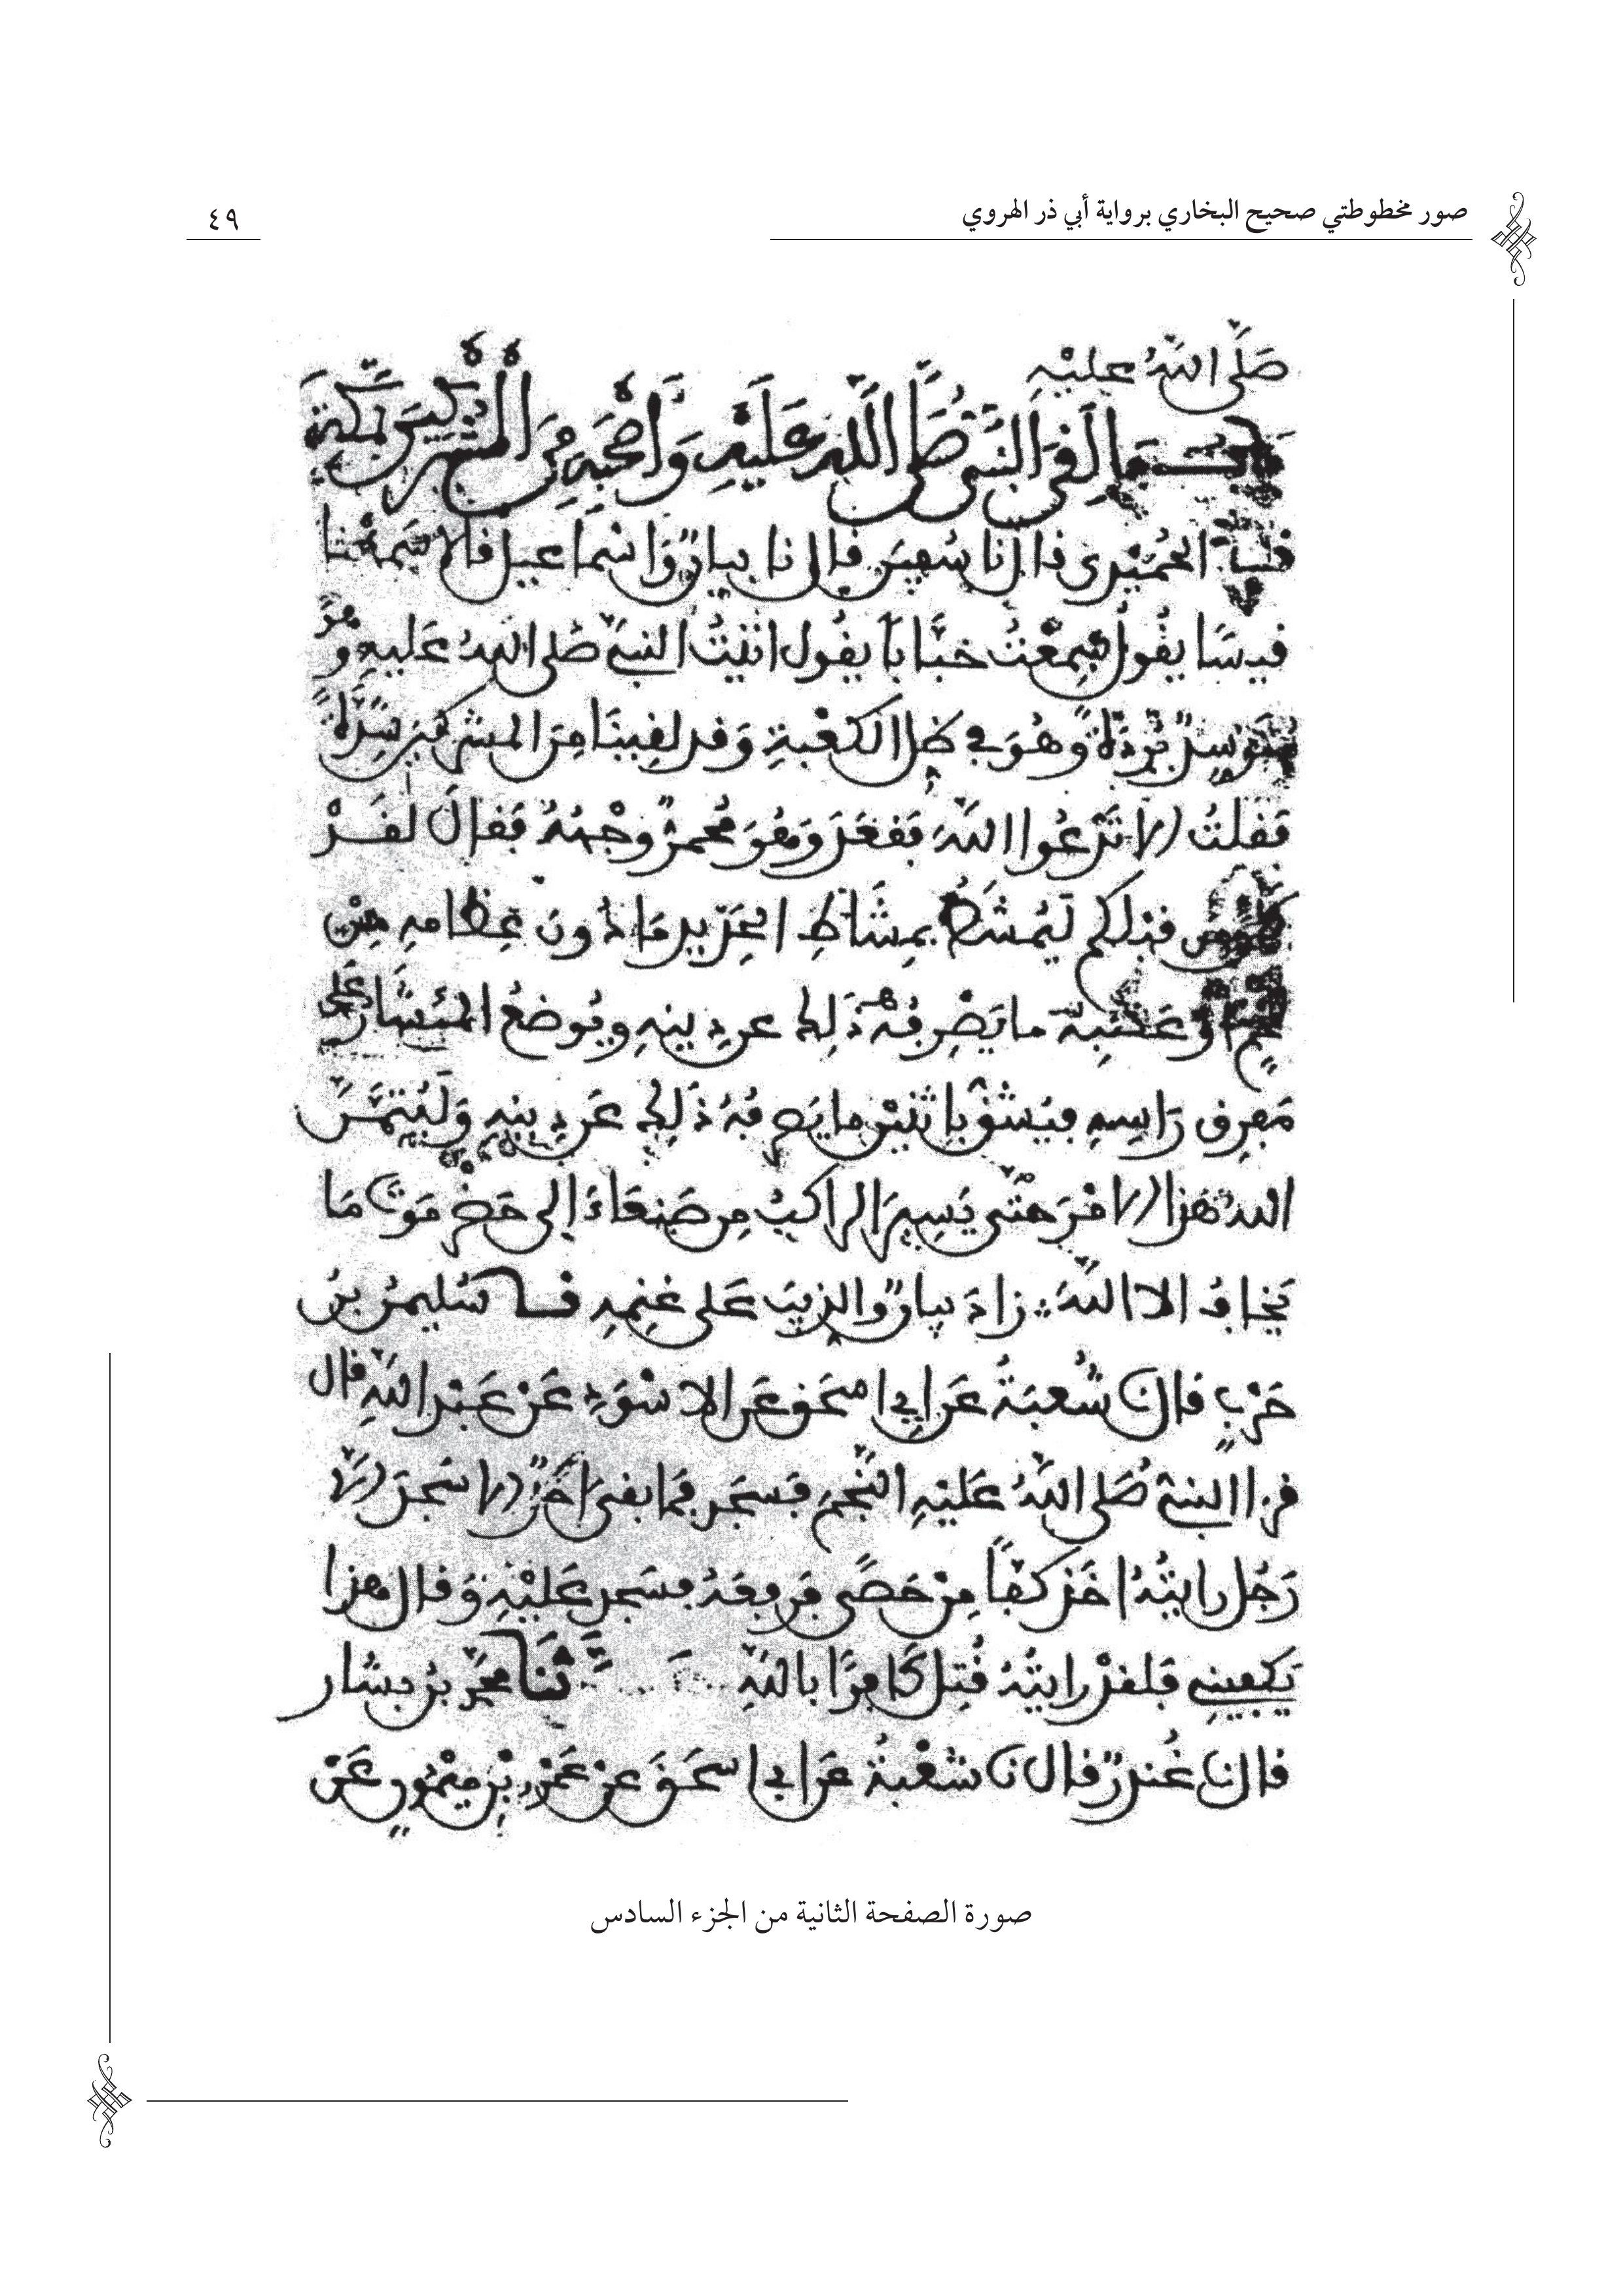 صور مخطوطتي صحيح البخاري برواية أبي ذر الهروي
٤٩
صَلَّى اللهُ عليْهِ
ما لَقِيَ النَّبِيُّ صَلَّى اللهُ عَلَيْهِ وَأَصْحَبُهُ مِنَ الْمُشْرِكِينَ بِمَكَّةَ
الحُمَيْدِي قال نا سُفْيَن قال نا بيانٌ وَإسْماعيل قالا سَمِعْنَا
قيسًا يقُول سَمِعْتُ خبَّابًا يقُول اتَيْتُ النبيَّ صَلى اللهُ عَليهِ وهُوَ
مُتَوَسِّدٌ بُرْدَةً وهُوَ في ظل الكعْبةِ وَقد لقِينَا مِنَ المشركينَ شِدَّةً
فَقلتُ الا تَدْعُوا اللهَ فَقعَدَ وَهُوَ مُحْمَرٌّ وجْهُهُ فقالَ لَقَدْ
كان من قبلكم لَيُمْشَطُ بِمِشَاطِ الحَدِيدِ مَا دُونَ عِظَامهِ مِنْ
لَحْمٍ اوْ عَصَبٍ ما يَصْرِفُهُ ذَلِكَ عن دِينهِ ويُوضعُ المِنْشَارُ عَلى
مَفرِقِ رَاسِهِ فيُشقُّ باثْنَيْنِ ما يَصْرِفُهُ ذَلِكَ عَن دِينِهِ وَلَيُتِمَّنَّ
اللهُ هَذا الامْرَ حتَّى يَسِيرَ الراكبُ مِن صَنعَاءَ إلى حَضْرَمَوتَ مَا
يَخافُ الا اللهَ زادَ بيانٌ والذِّيبَ عَلى غنمِهِ سُليمنُ بنُ
حَرْبٍ قال نا شُعبَةُ عَن ابي اسحَقَ عَن الاسْوَدِ عَنْ عَبْدِ اللهِ قال
قرأ النبيُّ صَلى اللهُ عَليْهِ النَّجْمَ فَسجَد فما بقيَ أَحَدٌ الا سَجدَ الا
رَجُل رايتُهُ اخَذ كفًّا مِنْ حَصًى فرفعَهُ فسَجد عَليْهِ وَقال هذا
يَكفِينِي فَلقدْ رايتُهُ قُتِل كَافِرًا باللهِ ثَنَا محمَّدُ بنُ بشار
قال نا غُندَرٌ قال نا شُعْبةُ عَن ابي اسحَقَ عنْ عَمْرِو بْنِ ميْمُونٍ عَنْ
صورة الصفحة الثانية من الجزء السادس